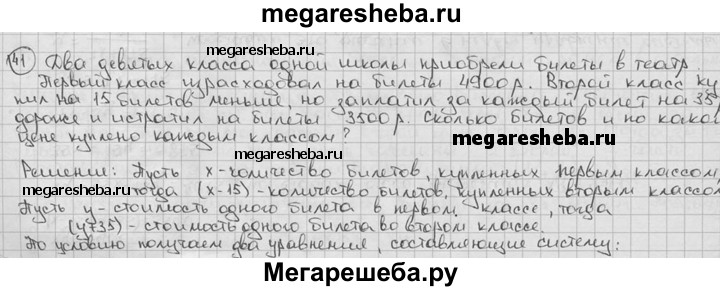 megaresheba.ru
41 Два девятых класса одной школы приобрели билеты в театр.
megaresheba.ru
Первый класс израсходовал на билеты 4900р. Второй класс ку
пил на 15 билетов меньше, но заплатил за каждый билет на 35
дороже и истратил на билеты 3500р. Сколько билетов и по какой
цене куплено каждым классом?
megaresheba.ru
megaresheba.ru
Решение: Пусть x-количество билетов, купленных первым классом,
megaresheba.ru
тогда (x-15)-количество билетов, купленных вторым классом
Пусть y-стоимость одного билета в первом классе, тогда
(y+35)-стоимость одного билета во втором классе.
По условию получаем два уравнения, составляющие систему:
Мегарешеба.ру